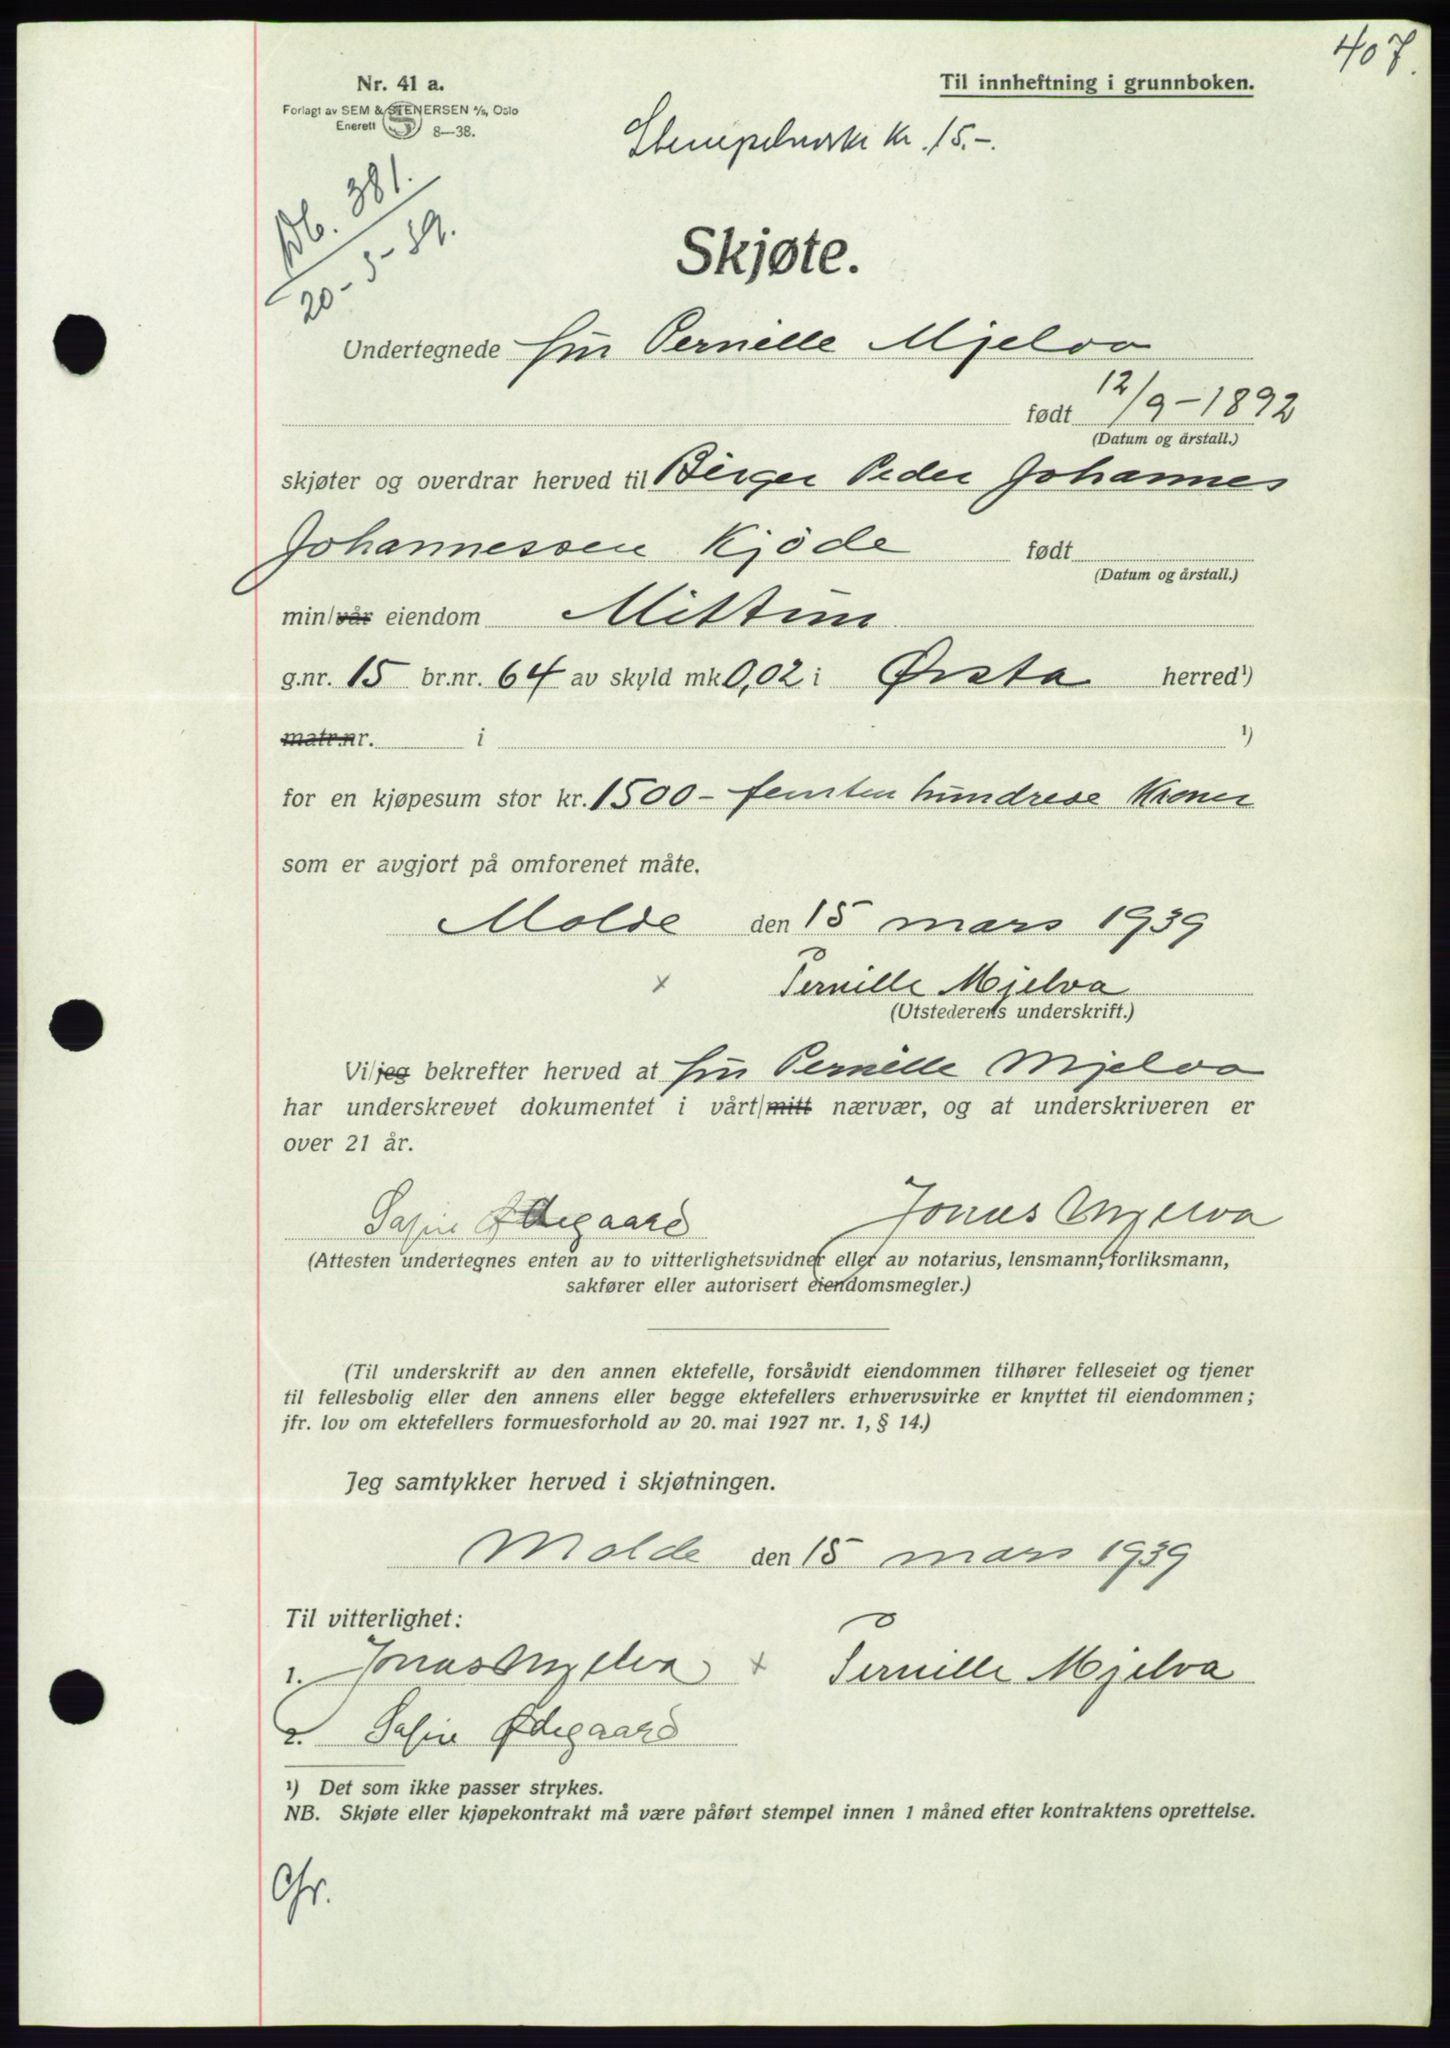 407.
Nr. 41 a.
Til innheftning i grunnboken.
Forlagt av SEM & STENERSEN A/S, Oslo
Enerett 8—38.
Stempelmerke kr. 15.-.
Db. 381.
20-3-39.
Skjøte.
Undertegnede fru Pernille Mjelva
født 12/9-1892
(Datum og årstall.)
skjøter og overdrar herved til Birger Peder Johannes
Johannessen Kjöde født
(Datum og årstall.)
min/vår eiendom Mittun
g.nr. 15 br.nr. 64 av skyld mk 0,02 i Ørsta herred¹)
matr.nr. i ¹)
for en kjøpesum stor kr. 1500 - femten hundrede Kroner
som er avgjort på omforenet måte.
Molde den 15 mars 1939
x Pernille Mjelva
(Utstederens underskrift.)
Vi/jeg bekrefter herved at fru Pernille Mjelva
har underskrevet dokumentet i vårt/mitt nærvær, og at underskriveren er
over 21 år.
Safie Ødegaard Jonas Mjelva
(Attesten undertegnes enten av to vitterlighetsvidner eller av notarius, lensmann, forliksmann,
sakfører eller autorisert eiendomsmegler.)
(Til underskrift av den annen ektefelle, forsåvidt eiendommen tilhører felleseiet og tjener
til fellesbolig eller den annens eller begge ektefellers erhvervsvirke er knyttet til eiendommen;
jfr. lov om ektefellers formuesforhold av 20. mai 1927 nr. 1, § 14.)
Jeg samtykker herved i skjøtningen.
Molde den 15 mars 1939
Til vitterlighet:
1. Jonas Mjelva x Pernille Mjelva
2. Safie Ødegaard
¹) Det som ikke passer strykes.
NB. Skjøte eller kjøpekontrakt må være påført stempel innen 1 måned efter kontraktens oprettelse.